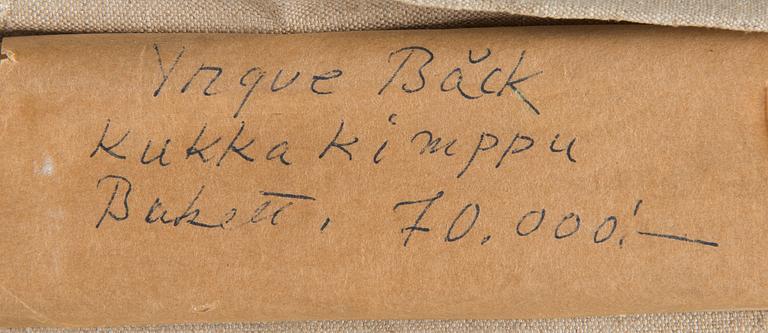 Yngve Bäck
Kukka kimppu
Bukett. 70.000:—